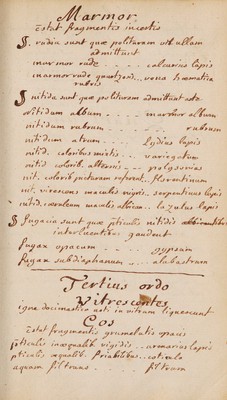 Marmor
Constat fragmentis incertis
§. rudia sunt quæ polituram vix ullam
admittunt
marmor rude - - - calcarius lapis
marmor rude quartzos. .. vena hæmatica
rubris
§ nitida sunt quæ polituram admittunt ut
nitidum album - - - - marmor album
nitidum rubrum - - - - - rubrum
nitidum atrum - - - - Lydius lapis
nitid. coloribus mixtis - - variegatum
nitid colorib. alternis - - - polyzonias
nit. colorib picturam referent.. florentinum
nit. virescens maculis nigris .. serpentinus lapis
nitid. cæruleum maculis albican. .. lazulus lapis
§ fugacia sunt quæ pticulis nitidis
interlucentibus gaudent
fugax opacum - - - - gypsum
fugax subdiaphanum - - - alabastrum
Tertius ordo
Vitrescentes
igne docimastico acti in vitrum liquescunt
Cos
Constat fragmentis grumelatis opacis
pticulis inæqualib rigidis .. arenarius lapis
pticulis æqualib. friabilibus .. coticula
aquam filtrans - - filtrum